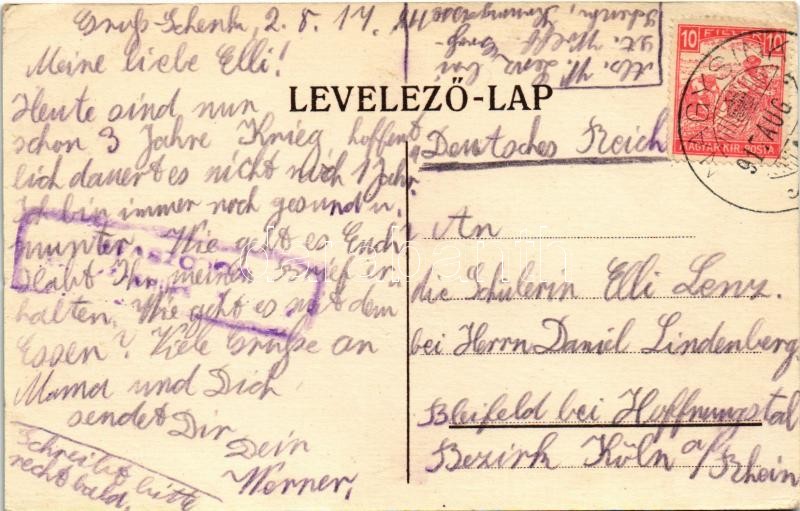 Groß-Schenk, 2. 8. 17.
Meine liebe Elli!
Heute sind nun
schon 3 Jahre Krieg, hoffent
lich dauert es nicht noch 1 Jahr.
Ich bin immer noch gesund u.
munter. Wie geht es Euch?
Habt Ihr meinen Brief er-
halten. Wie geht es mit dem
Essen? Viele Grüße an
Mama und Dich
sendet Dir
Dein
Werner,
Schreibt bitte
recht bald.
LEVELEZŐ-LAP
Deutsches Reich
An
die Schülerin Elli Lenz.
bei Herrn Daniel Lindenberg
Bleifeld bei Hoffnungstal
Bezirk Köln a/Rhein
Abs. W. Lenz, bei
10 FILLER 10
MAGYAR KIR. POSTA
917 AUG 2